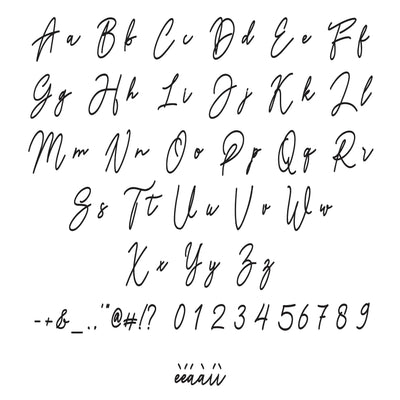 A a B b C c D d E e F f
G g H h I i J j K k L l
M m N n O o P p Q q R r
S s T t U u V v W w
X x Y y Z z
-+&_.,'"@#!? 0 1 2 3 4 5 6 7 8 9
èéàáìí